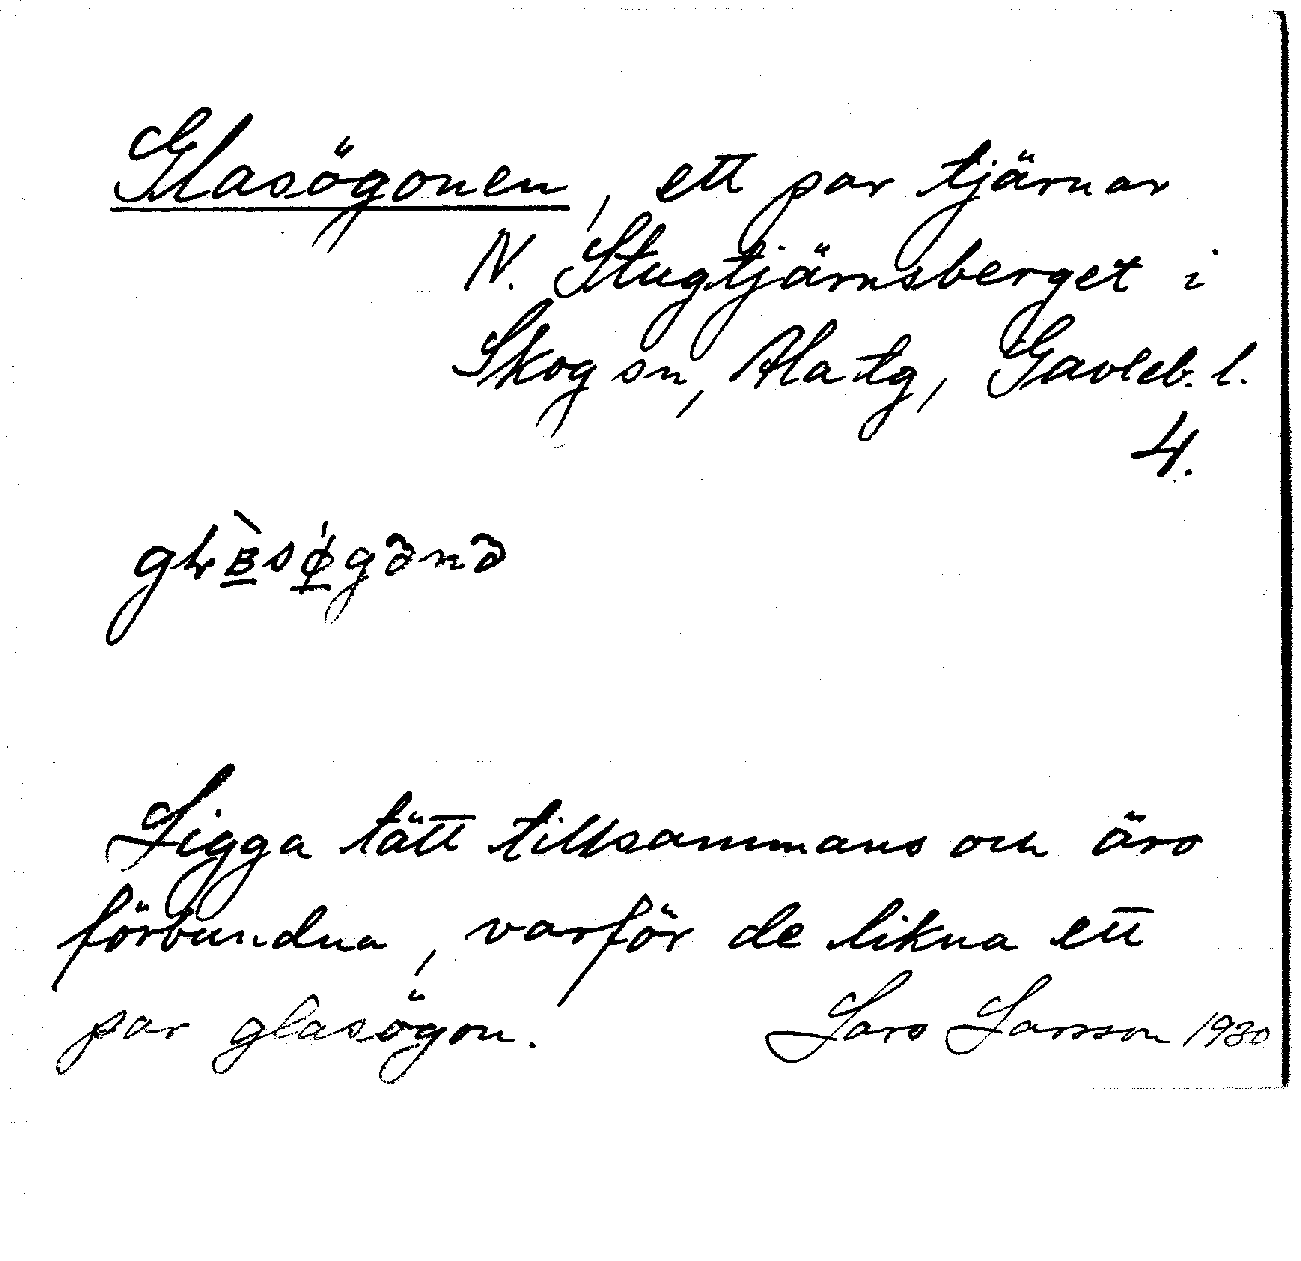 Glasögonen, ett par tjärnar
N. Stugtjärnsberget i
Skog sn, Ala tg, Gävleb. l.
4.
Ligga tätt tillsammans och äro
förbundna, varför de likna ett
par glasögon. Lars Larsson 1930